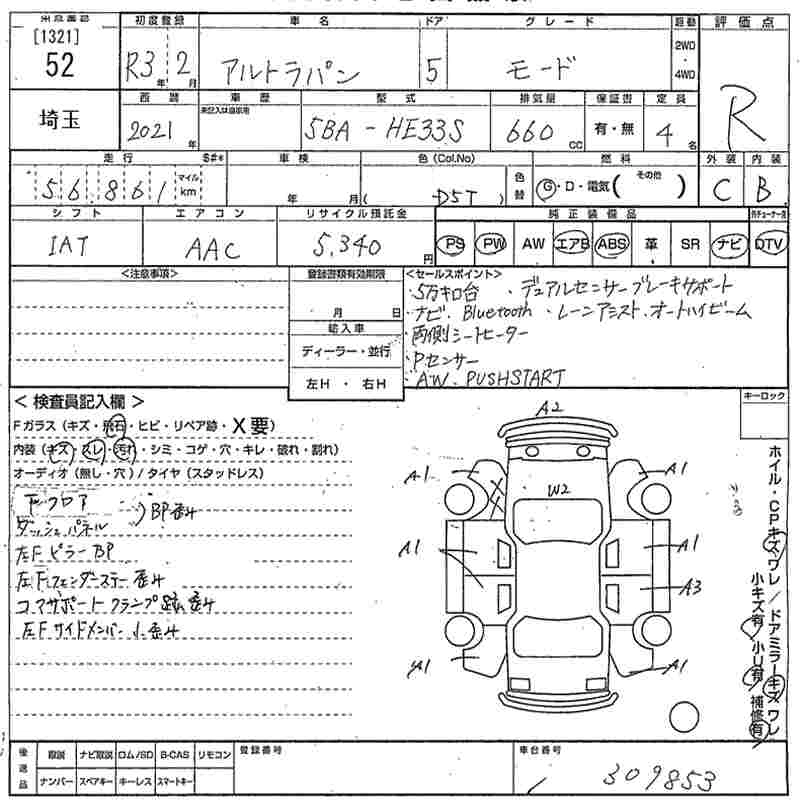 [1321]
52
初度登録 車名 ドア グレード 駆動 評価点
R3年 2月 アルトラパン 5 モード 2WD・4WD R
埼玉
西暦 車歴 型式 排気量 保証書 定員
未記入は自家用
2021年 5BA-HE33S 660cc 有・無 4名
走行 S#* 車検 色(Col.No) 燃料 外装 内装
56861 マイル km 年 月( D5T) 色替 G・D・電気(その他) C B
シフト エアコン リサイクル預託金 純正装備品
IAT AAC 5,340円 PS PW AW エアB ABS 革 SR ナビ DTV
<注意事項> 登録書類有効期限 <セールスポイント>
月 日
輸入車
ディーラー・並行
左H・右H
・5万キロ台 ・デュアルセンサーブレーキサポート
・ナビ、Bluetooth ・レーンアシスト、オートハイビーム
・両側シートヒーター
・Pセンサー
・AW、PUSHSTART
<検査員記入欄>
Fガラス(キズ・飛石・ヒビ・リペア跡・X要)
内装(キズ・スレ・汚れ・シミ・コゲ・穴・キレ・破れ・割れ)
オーディオ(無し・穴)/タイヤ(スタッドレス)
Fフロア
ダッシュパネル )BP歪み
左Fピラー BP
左Fフェンダーステー歪み
コアサポートクランプ跡、歪み
左Fサイドメンバー小歪み
キーロック
A2
A1 A1
W2
A1 A1
A3
A1 A1
ホイル・CPキズワレ/ドアミラーキズワレ
小キズ有 小U有 補修有
後送品 取説 ナビ取説 ロム/SD B-CAS リモコン 登録番号 車台番号
ナンバー スペアキー キーレス スマートキー 309853